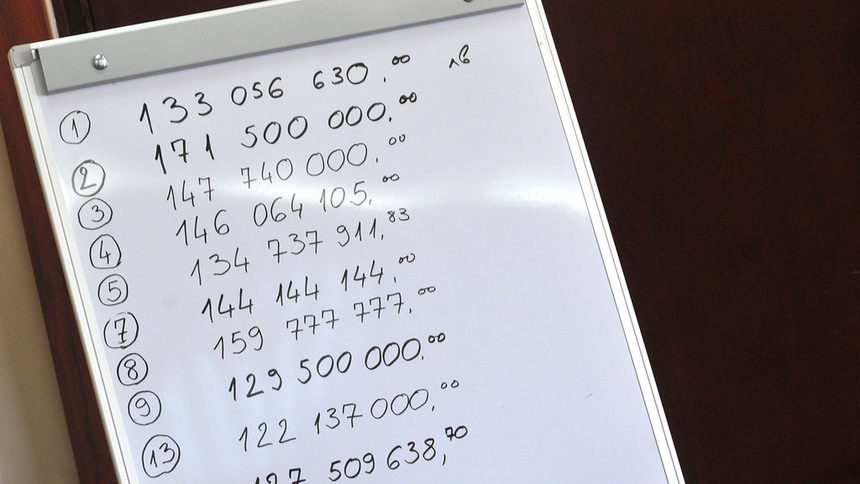 ① 133 056 630,00 лв
② 171 500 000,00
③ 147 740 000,00
④ 146 064 105,00
⑤ 134 737 911,83
⑦ 144 144 144,00
⑧ 159 777 777,00
⑨ 129 500 000,00
⑬ 122 137 000,00
509 638,70